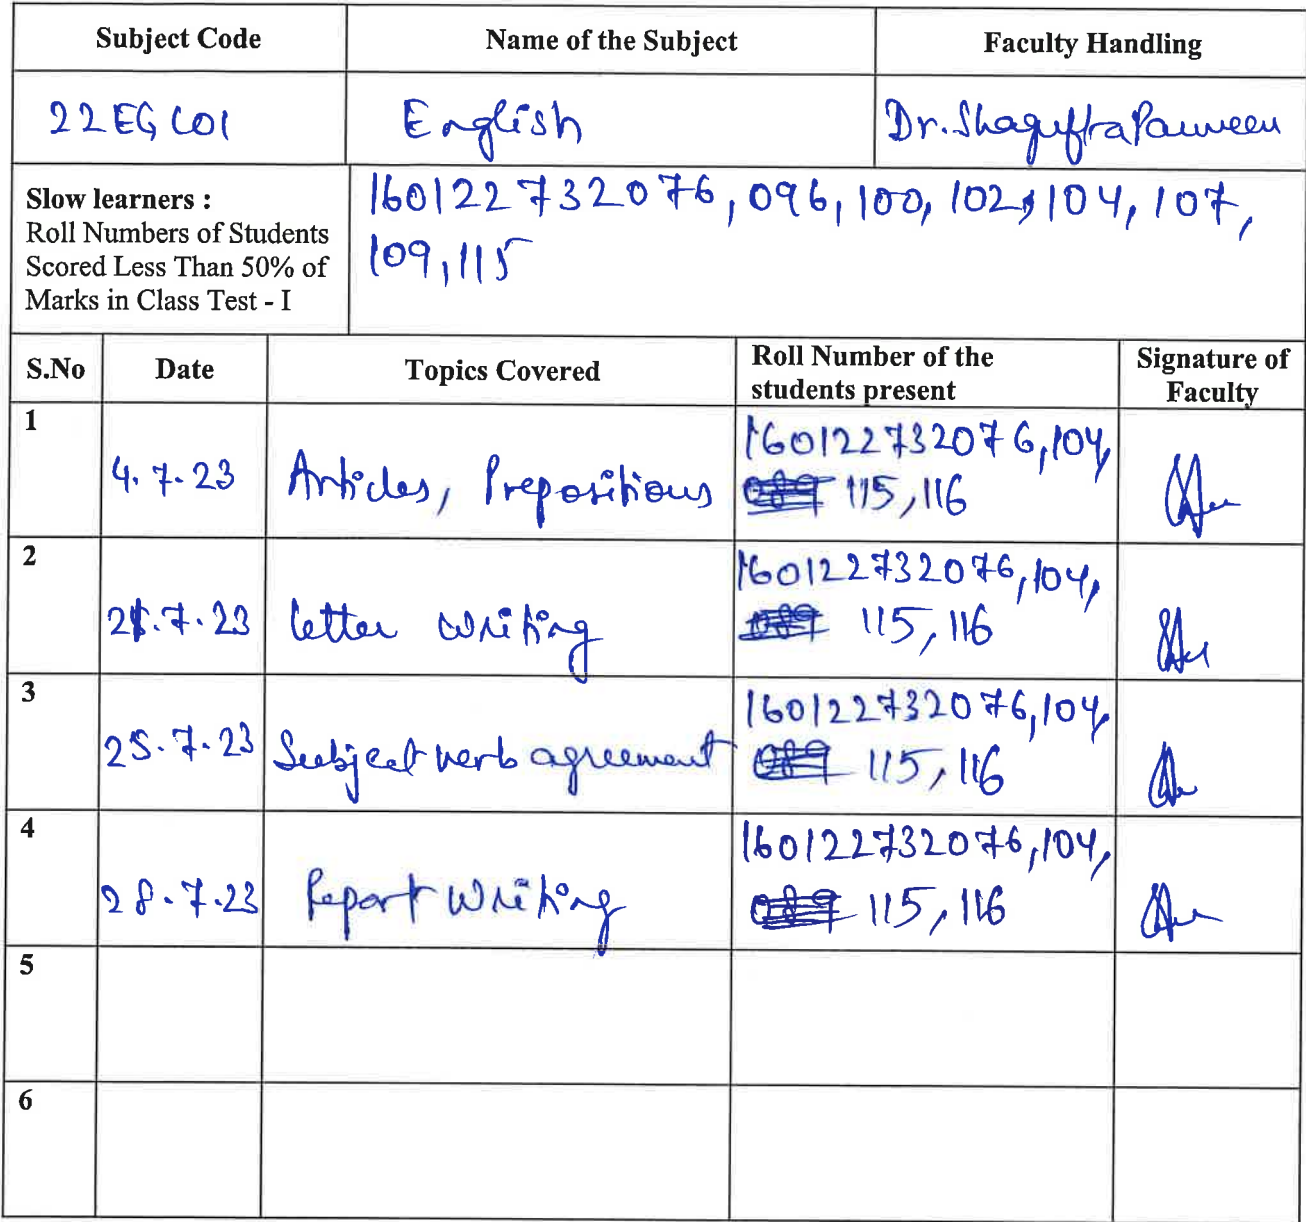 Subject Code Name of the Subject Faculty Handling
22EGC01 English Dr. Shagufta Parveen
Slow learners :
Roll Numbers of Students
Scored Less Than 50% of
Marks in Class Test - I
160122732076, 096, 100, 102, 104, 107,
109, 115
S.No Date Topics Covered Roll Number of the students present Signature of Faculty
1 4.7.23 Articles, Prepositions 160122732076, 104,
115, 116
2 21.7.23 letter writing 160122732076, 104,
115, 116
3 25.7.23 Subject verb agreement 160122732076, 104,
115, 116
4 28.7.23 Report Writing 160122732076, 104,
115, 116
5
6